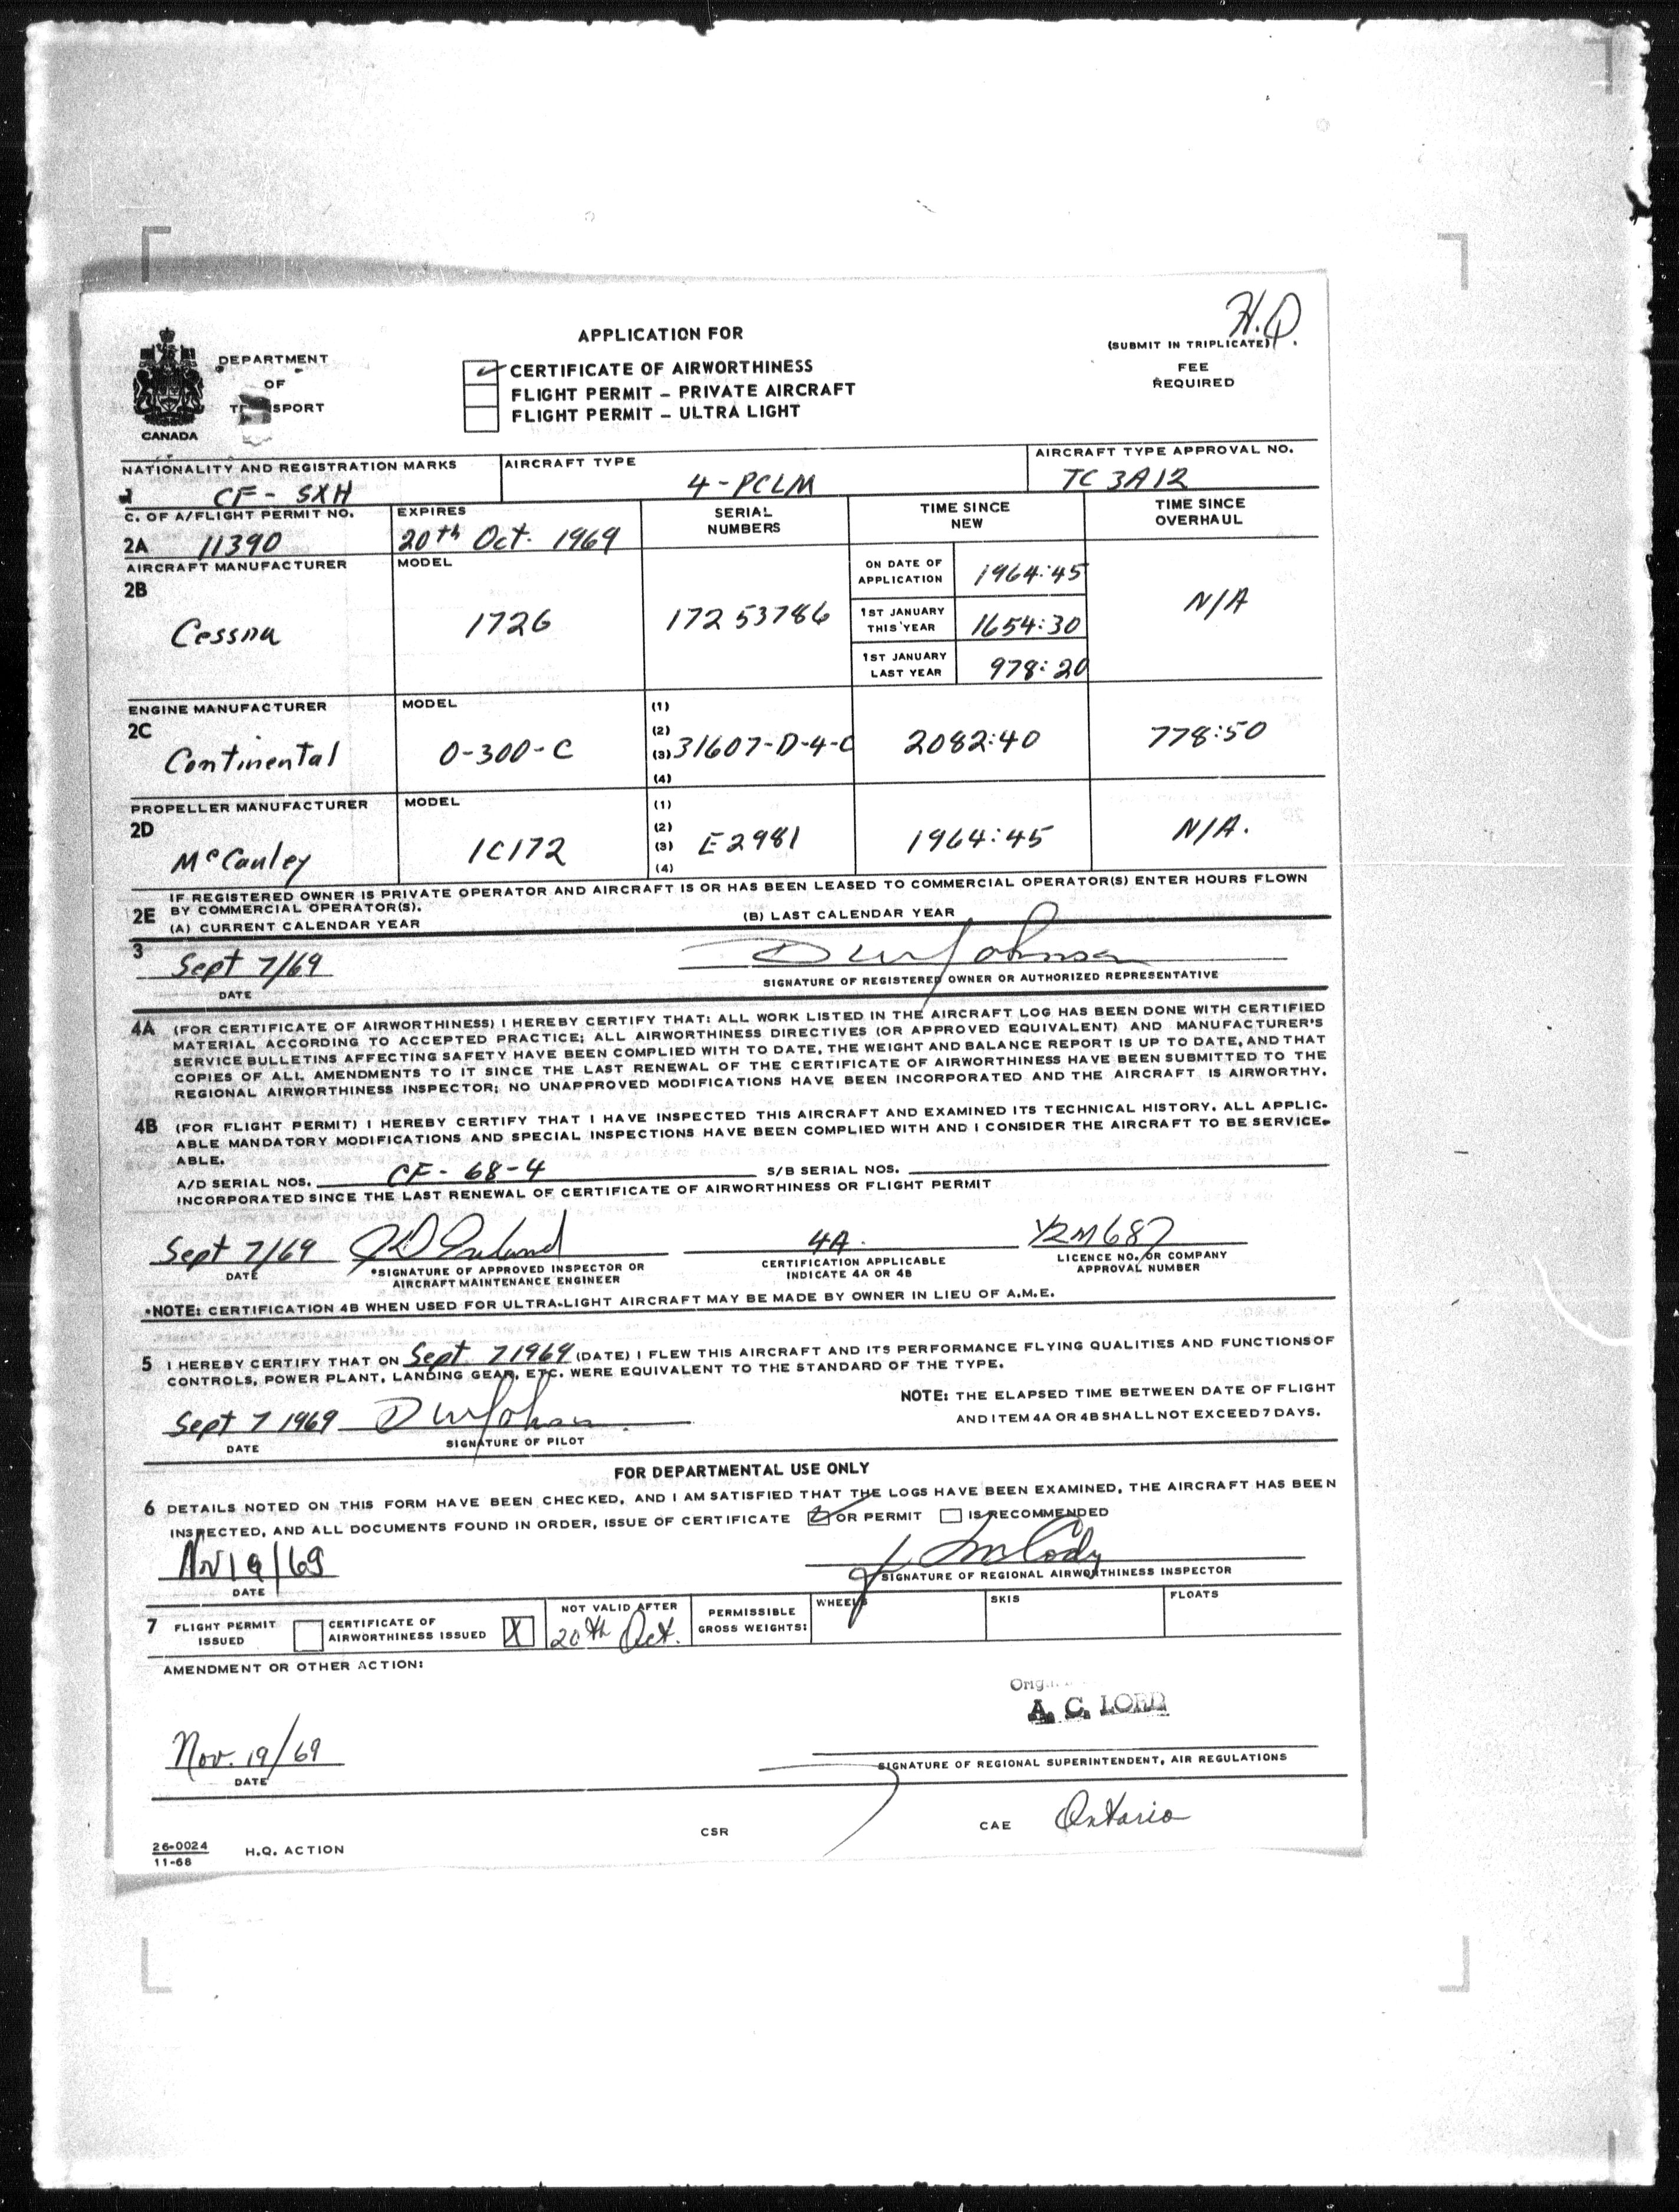 H.Q.
(SUBMIT IN TRIPLICATE)
FEE
REQUIRED
APPLICATION FOR
CERTIFICATE OF AIRWORTHINESS
FLIGHT PERMIT – PRIVATE AIRCRAFT
FLIGHT PERMIT – ULTRA LIGHT
DEPARTMENT
OF
CANADA
NATIONALITY AND REGISTRATION MARKS
AIRCRAFT TYPE
AIRCRAFT TYPE APPROVAL NO.
1 CF - SXH
4-PCLM
TC 3A12
C. OF A/FLIGHT PERMIT NO.
EXPIRES
SERIAL NUMBERS
TIME SINCE NEW
TIME SINCE OVERHAUL
2A 11390
20th Oct. 1969
AIRCRAFT MANUFACTURER
MODEL
2B
Cessna
172G
172 53786
ON DATE OF APPLICATION 1964:45
1ST JANUARY THIS YEAR 1654:30
1ST JANUARY LAST YEAR 978:20
N/A
ENGINE MANUFACTURER
MODEL
2C
Continental
O-300-C
(1)
(2)
(3) 31607-D-4-C
(4)
2082:40
778:50
PROPELLER MANUFACTURER
MODEL
2D
McCauley
1C172
(1)
(2)
(3) E2981
(4)
1964:45
N/A.
2E IF REGISTERED OWNER IS PRIVATE OPERATOR AND AIRCRAFT IS OR HAS BEEN LEASED TO COMMERCIAL OPERATOR(S) ENTER HOURS FLOWN
BY COMMERCIAL OPERATOR(S).
(A) CURRENT CALENDAR YEAR (B) LAST CALENDAR YEAR
3 Sept 7/69 D W Johnson
DATE SIGNATURE OF REGISTERED OWNER OR AUTHORIZED REPRESENTATIVE
4A (FOR CERTIFICATE OF AIRWORTHINESS) I HEREBY CERTIFY THAT: ALL WORK LISTED IN THE AIRCRAFT LOG HAS BEEN DONE WITH CERTIFIED
MATERIAL ACCORDING TO ACCEPTED PRACTICE; ALL AIRWORTHINESS DIRECTIVES (OR APPROVED EQUIVALENT) AND MANUFACTURER'S
SERVICE BULLETINS AFFECTING SAFETY HAVE BEEN COMPLIED WITH TO DATE, THE WEIGHT AND BALANCE REPORT IS UP TO DATE, AND THAT
COPIES OF ALL AMENDMENTS TO IT SINCE THE LAST RENEWAL OF THE CERTIFICATE OF AIRWORTHINESS HAVE BEEN SUBMITTED TO THE
REGIONAL AIRWORTHINESS INSPECTOR; NO UNAPPROVED MODIFICATIONS HAVE BEEN INCORPORATED AND THE AIRCRAFT IS AIRWORTHY.
4B (FOR FLIGHT PERMIT) I HEREBY CERTIFY THAT I HAVE INSPECTED THIS AIRCRAFT AND EXAMINED ITS TECHNICAL HISTORY. ALL APPLIC-
ABLE MANDATORY MODIFICATIONS AND SPECIAL INSPECTIONS HAVE BEEN COMPLIED WITH AND I CONSIDER THE AIRCRAFT TO BE SERVICE-
ABLE.
A/D SERIAL NOS. CF - 68-4 S/B SERIAL NOS.
INCORPORATED SINCE THE LAST RENEWAL OF CERTIFICATE OF AIRWORTHINESS OR FLIGHT PERMIT
Sept 7/69 4A. YZM687
DATE *SIGNATURE OF APPROVED INSPECTOR OR AIRCRAFT MAINTENANCE ENGINEER
CERTIFICATION APPLICABLE INDICATE 4A OR 4B
LICENCE NO. OR COMPANY APPROVAL NUMBER
*NOTE: CERTIFICATION 4B WHEN USED FOR ULTRA-LIGHT AIRCRAFT MAY BE MADE BY OWNER IN LIEU OF A.M.E.
5 I HEREBY CERTIFY THAT ON Sept. 7 1969 (DATE) I FLEW THIS AIRCRAFT AND ITS PERFORMANCE FLYING QUALITIES AND FUNCTIONS OF
CONTROLS, POWER PLANT, LANDING GEAR, ETC. WERE EQUIVALENT TO THE STANDARD OF THE TYPE.
NOTE: THE ELAPSED TIME BETWEEN DATE OF FLIGHT
AND ITEM 4A OR 4B SHALL NOT EXCEED 7 DAYS.
Sept 7 1969 D W Johnson
DATE SIGNATURE OF PILOT
FOR DEPARTMENTAL USE ONLY
6 DETAILS NOTED ON THIS FORM HAVE BEEN CHECKED, AND I AM SATISFIED THAT THE LOGS HAVE BEEN EXAMINED, THE AIRCRAFT HAS BEEN
INSPECTED, AND ALL DOCUMENTS FOUND IN ORDER, ISSUE OF CERTIFICATE OR PERMIT IS RECOMMENDED
Nov 19/69
DATE SIGNATURE OF REGIONAL AIRWORTHINESS INSPECTOR
7 FLIGHT PERMIT ISSUED
CERTIFICATE OF AIRWORTHINESS ISSUED X
NOT VALID AFTER
20th Oct.
PERMISSIBLE GROSS WEIGHTS:
WHEELS
SKIS
FLOATS
AMENDMENT OR OTHER ACTION:
A. C. LORD
Nov. 19/69
DATE SIGNATURE OF REGIONAL SUPERINTENDENT, AIR REGULATIONS
CSR CAE Ontario
26-0024
11-68
H.Q. ACTION